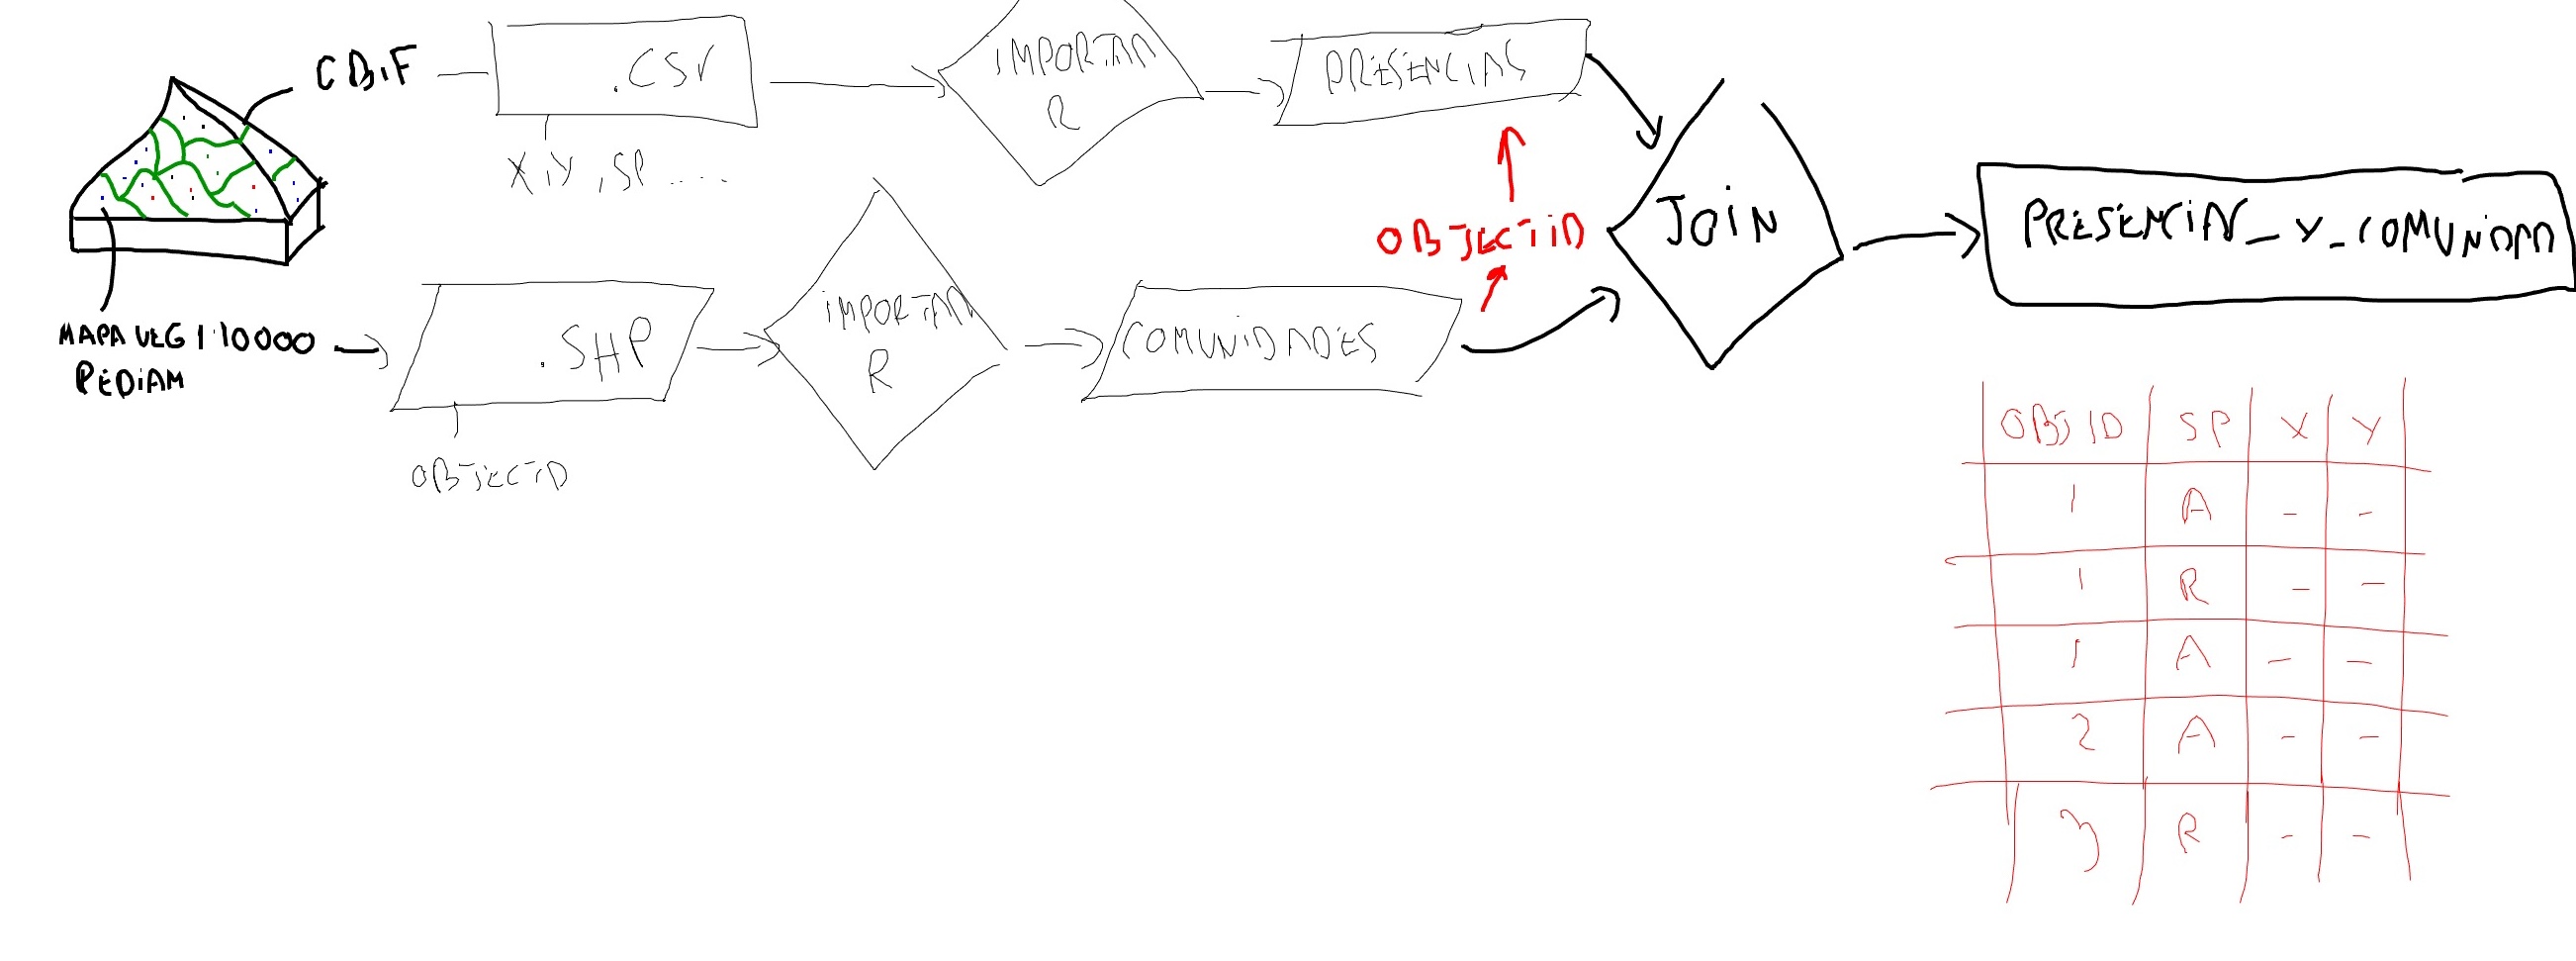 CBiF
.CSV
X,Y,SP....
IMPORTAR
R
PRESENCIAS
MAPA VEG 1:10000
PEDiAM
.SHP
OBJECTID
IMPORTAR
R
COMUNiDADES
OBJECTiD
JOiN
PRESENCIA_Y_COMUNiDAD
OBJID SP X Y
1 A - -
1 R - -
1 A - -
2 A - -
3 R - -